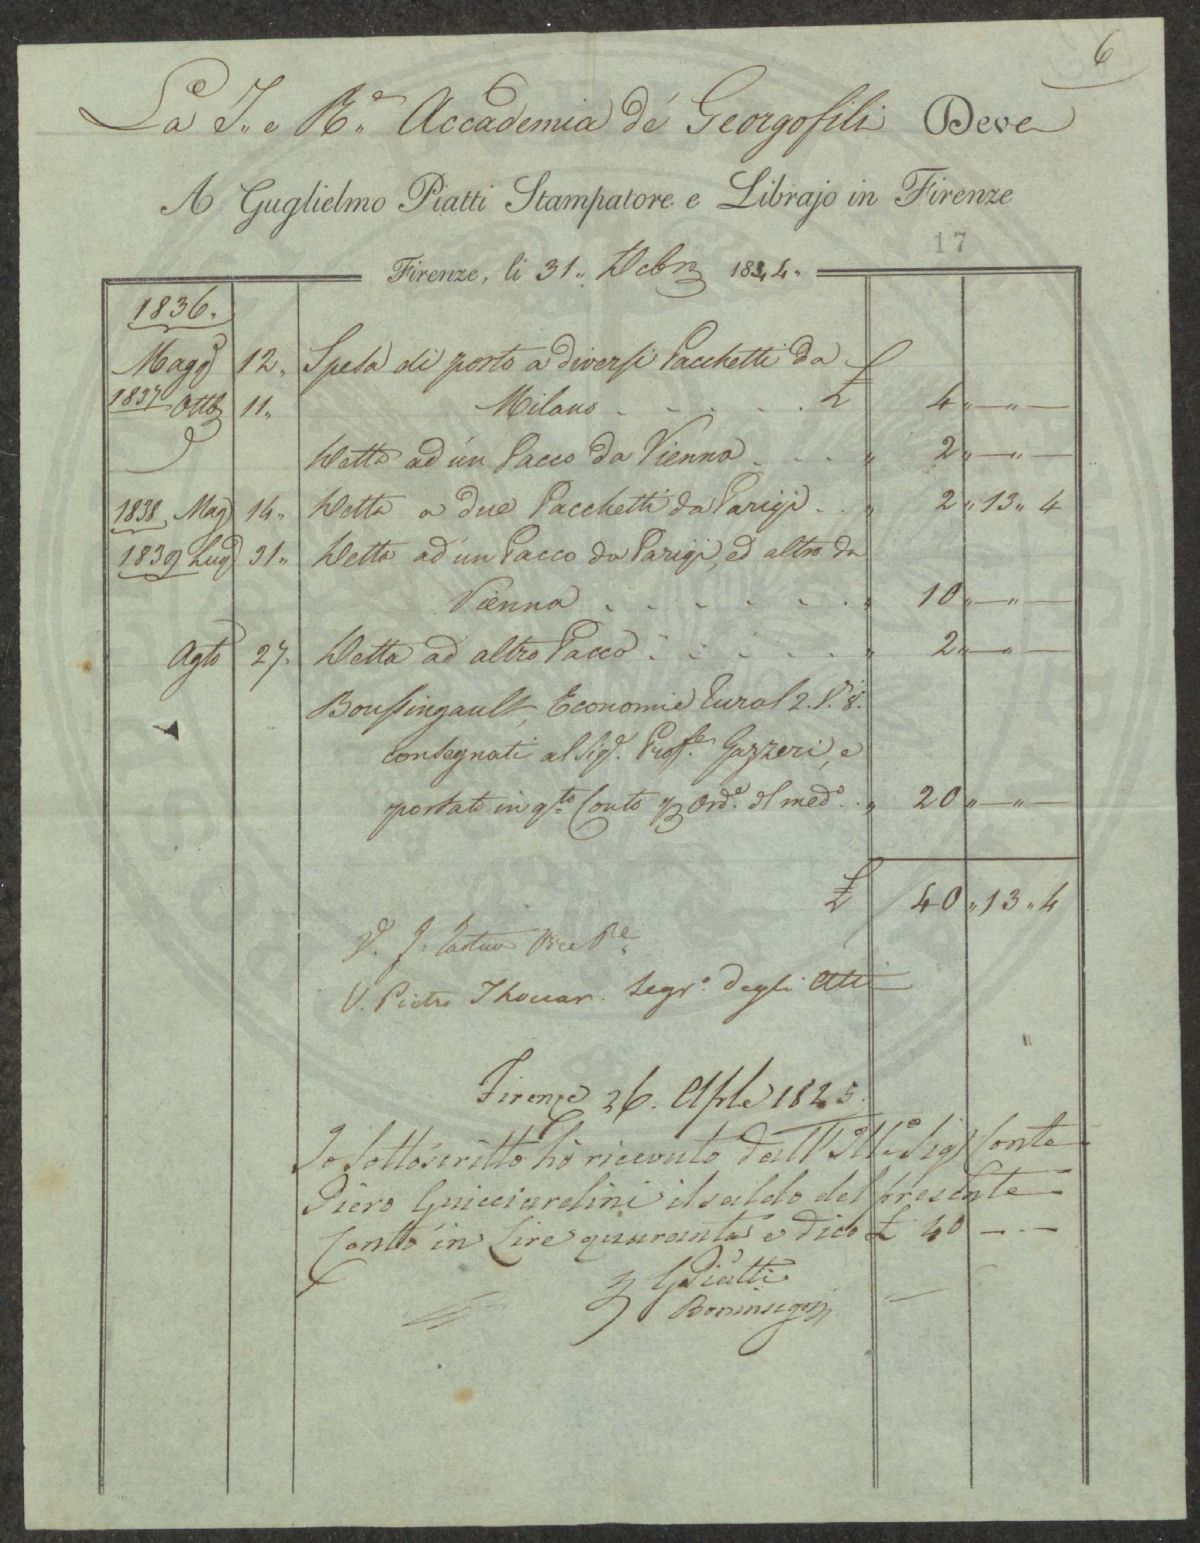 6
La I. e R.a Accademia de' Georgofili Deve
A Guglielmo Piatti Stampatore e Librajo in Firenze
17
Firenze, li 31. Xcbre 1844.
1836.
Magg.o 12. Spesa di porto a diversi Pacchetti da
1837 Ott.e 11. Milano . . . . . £ 4 „ — „ —
Detta ad un Pacco da Vienna . . . „ 2 „ — „ —
1838 Mag.o 14. Detta a due Pacchetti da Parigi . . „ 2 „ 13 „ 4
1839 Lug.o 31. Detta ad un Pacco da Parigi, ed altro da
Vienna . . . . . . „ 10 „ — „ —
Agto 27. Detta ad altro Pacco . . . . . „ 2 „ — „ —
Boussingault, Economie Rural 2. V. 8.
consegnati al Sig.r Proff.e Gazzeri, e
portato in q.to Conto p Ord.e del med.o . „ 20 „ — „ —
£ 40 „ 13 „ 4
V. Vice P.e
V. Pietro Thouar Segr.o degli Atti
Firenze 26. Aple 1845.
Io sottoscritto hò ricevuto dall' Ill.o Sig.r Conte
Piero Guicciardini il saldo del presente
Conto in Lire quaranta e dico £ 40 — . —
p G Piatti